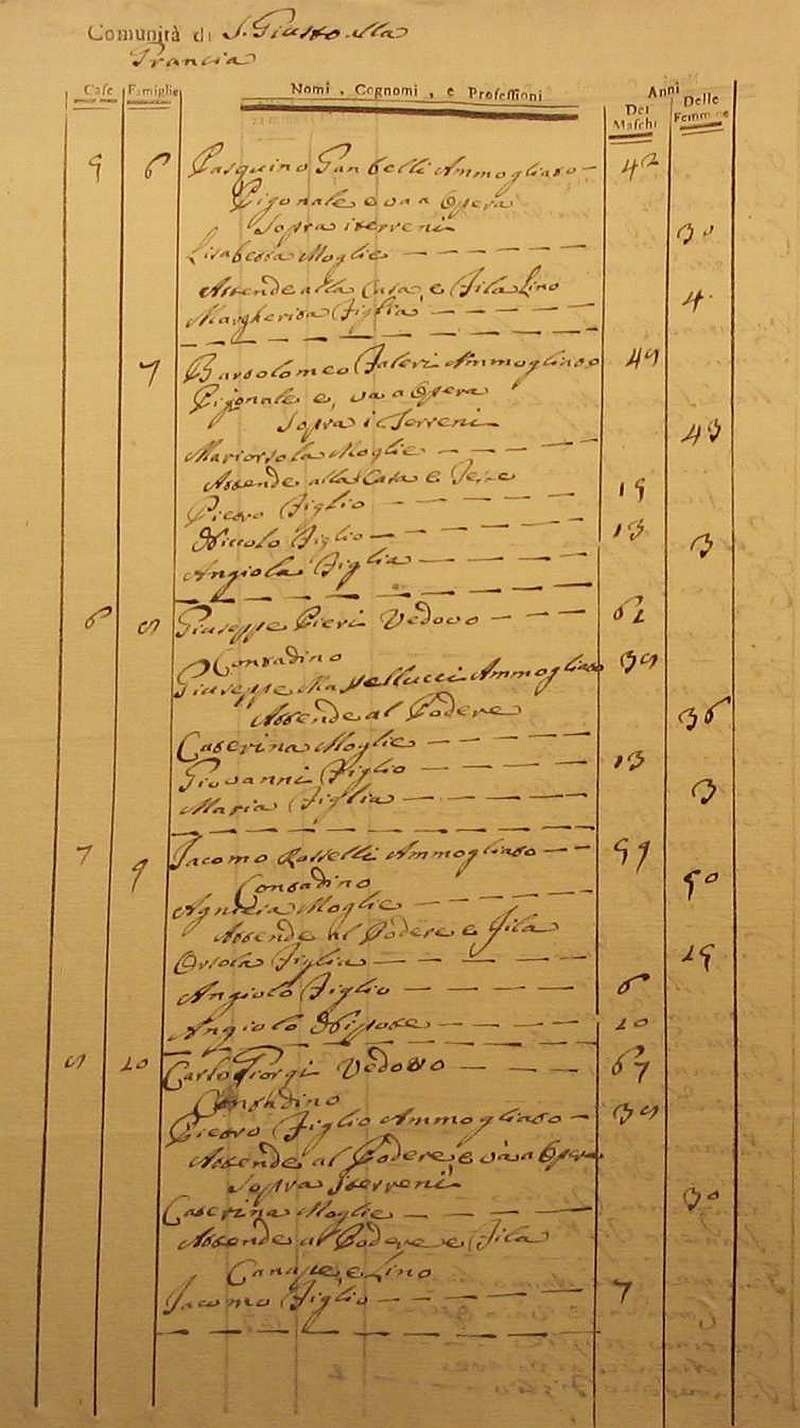 Comunità di S. Giusto alla
Case Famiglie Nomi, Cognomi, e Professioni Anni
Dei Maschi Delle Femmine
5 6 Pasquino Gambelli Ammogliato 42
Pigionale e va a Opera
Sopra i terreni
Lisabetta Moglie 30
Attende alla Casa, e Fila Lino
Margherita Figlia 4
7 Bartolomeo Ammogliato 47
Pigionale e, va a Opera
Sopra i Terreni
Mariorsola Moglie 43
Attende alla Casa e
Pietro Figlio 15
Niccolo Figlio 13
Angiola Figlia 3
6 8 Giuseppe Pieri Vedovo 62
Contadino
Giuseppe Ammogliato 38
Attende al Podere
Caterina Moglie 36
Giovanni Figlio 13
Maria Figlia 3
7 9 Jacomo Ammogliato 57
Contadino
Moglie 50
Attende al Podere e Fila
Orsola Figlia 15
Angiolo Figlio 6
Angiolo Nipote 10
8 10 Carlo Giorgi Vedovo 67
Contadino
Pietro Figlio Ammogliato 38
Attende al Podere, e va a Opera
Sopra i terreni
Caterina Moglie 30
Attende al Podere e Fila
Canape, e Lino
Jacomo Figlio 7